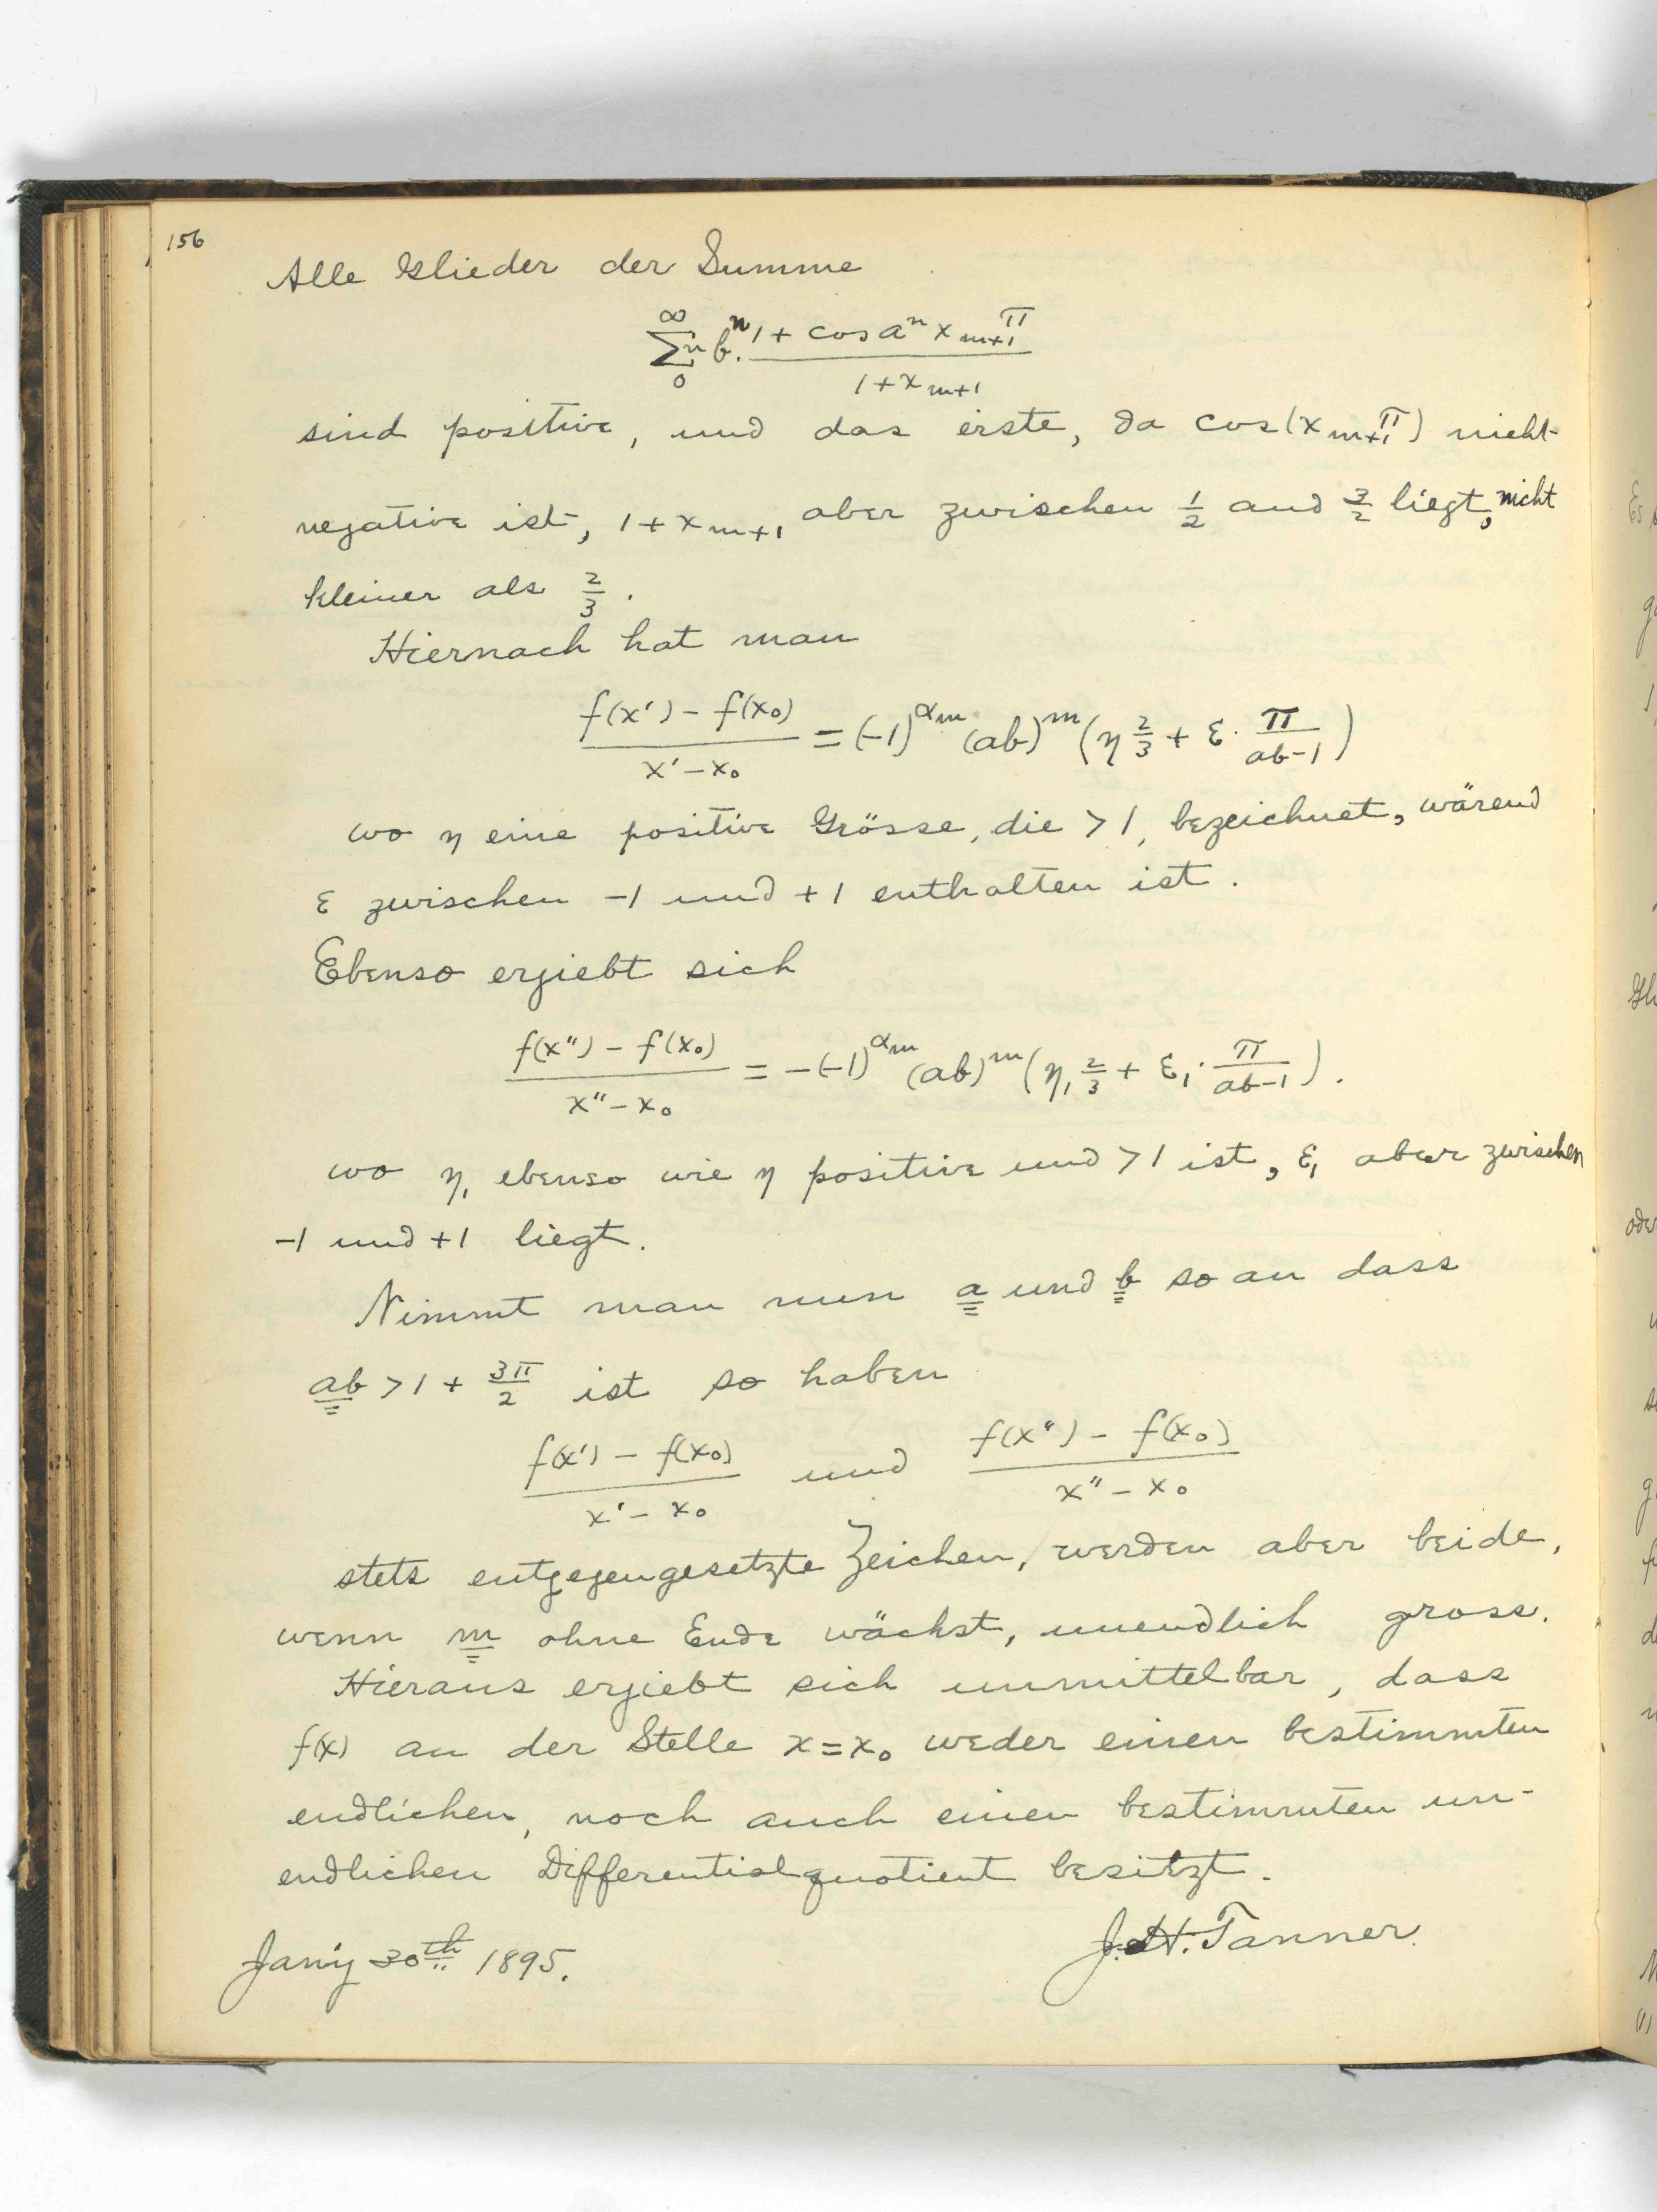 156
Alle Glieder der Summe
∞ ∑n 0 b^n. (1 + cos a^n x_{m+1}π) / (1 + x_{m+1})
sind positive, und das erste, da cos(x_{m+1}π) nicht
negative ist, 1 + x_{m+1} aber zwischen 1/2 and 3/2 liegt, nicht
kleiner als 2/3.
Hiernach hat man
(f(x′) – f(x₀)) / (x′ – x₀) = (–1)^{αm} (ab)^m (η 2/3 + ε · π/(ab–1))
wo η eine positive Grösse, die > 1, bezeichnet, wärend
ε zwischen –1 und +1 enthalten ist.
Ebenso ergiebt sich
(f(x″) – f(x₀)) / (x″ – x₀) = –(–1)^{αm} (ab)^m (η₁ 2/3 + ε₁ · π/(ab–1)).
wo η₁ ebenso wie η positive und > 1 ist, ε₁ aber zwischen
–1 und +1 liegt.
Nimmt man nun a und b so an dass
ab > 1 + 3π/2 ist so haben
(f(x′) – f(x₀)) / (x′ – x₀) und (f(x″) – f(x₀)) / (x″ – x₀)
stets entgegengesetzte Zeichen, werden aber beide,
wenn m ohne Ende wächst, unendlich gross.
Hieraus ergiebt sich unmittelbar, dass
f(x) an der Stelle x = x₀ weder einen bestimmten
endlichen, noch auch einen bestimmten un-
endlichen Differentialquotient besitzt.
Jan'y 30th 1895.
J. H. Tanner.